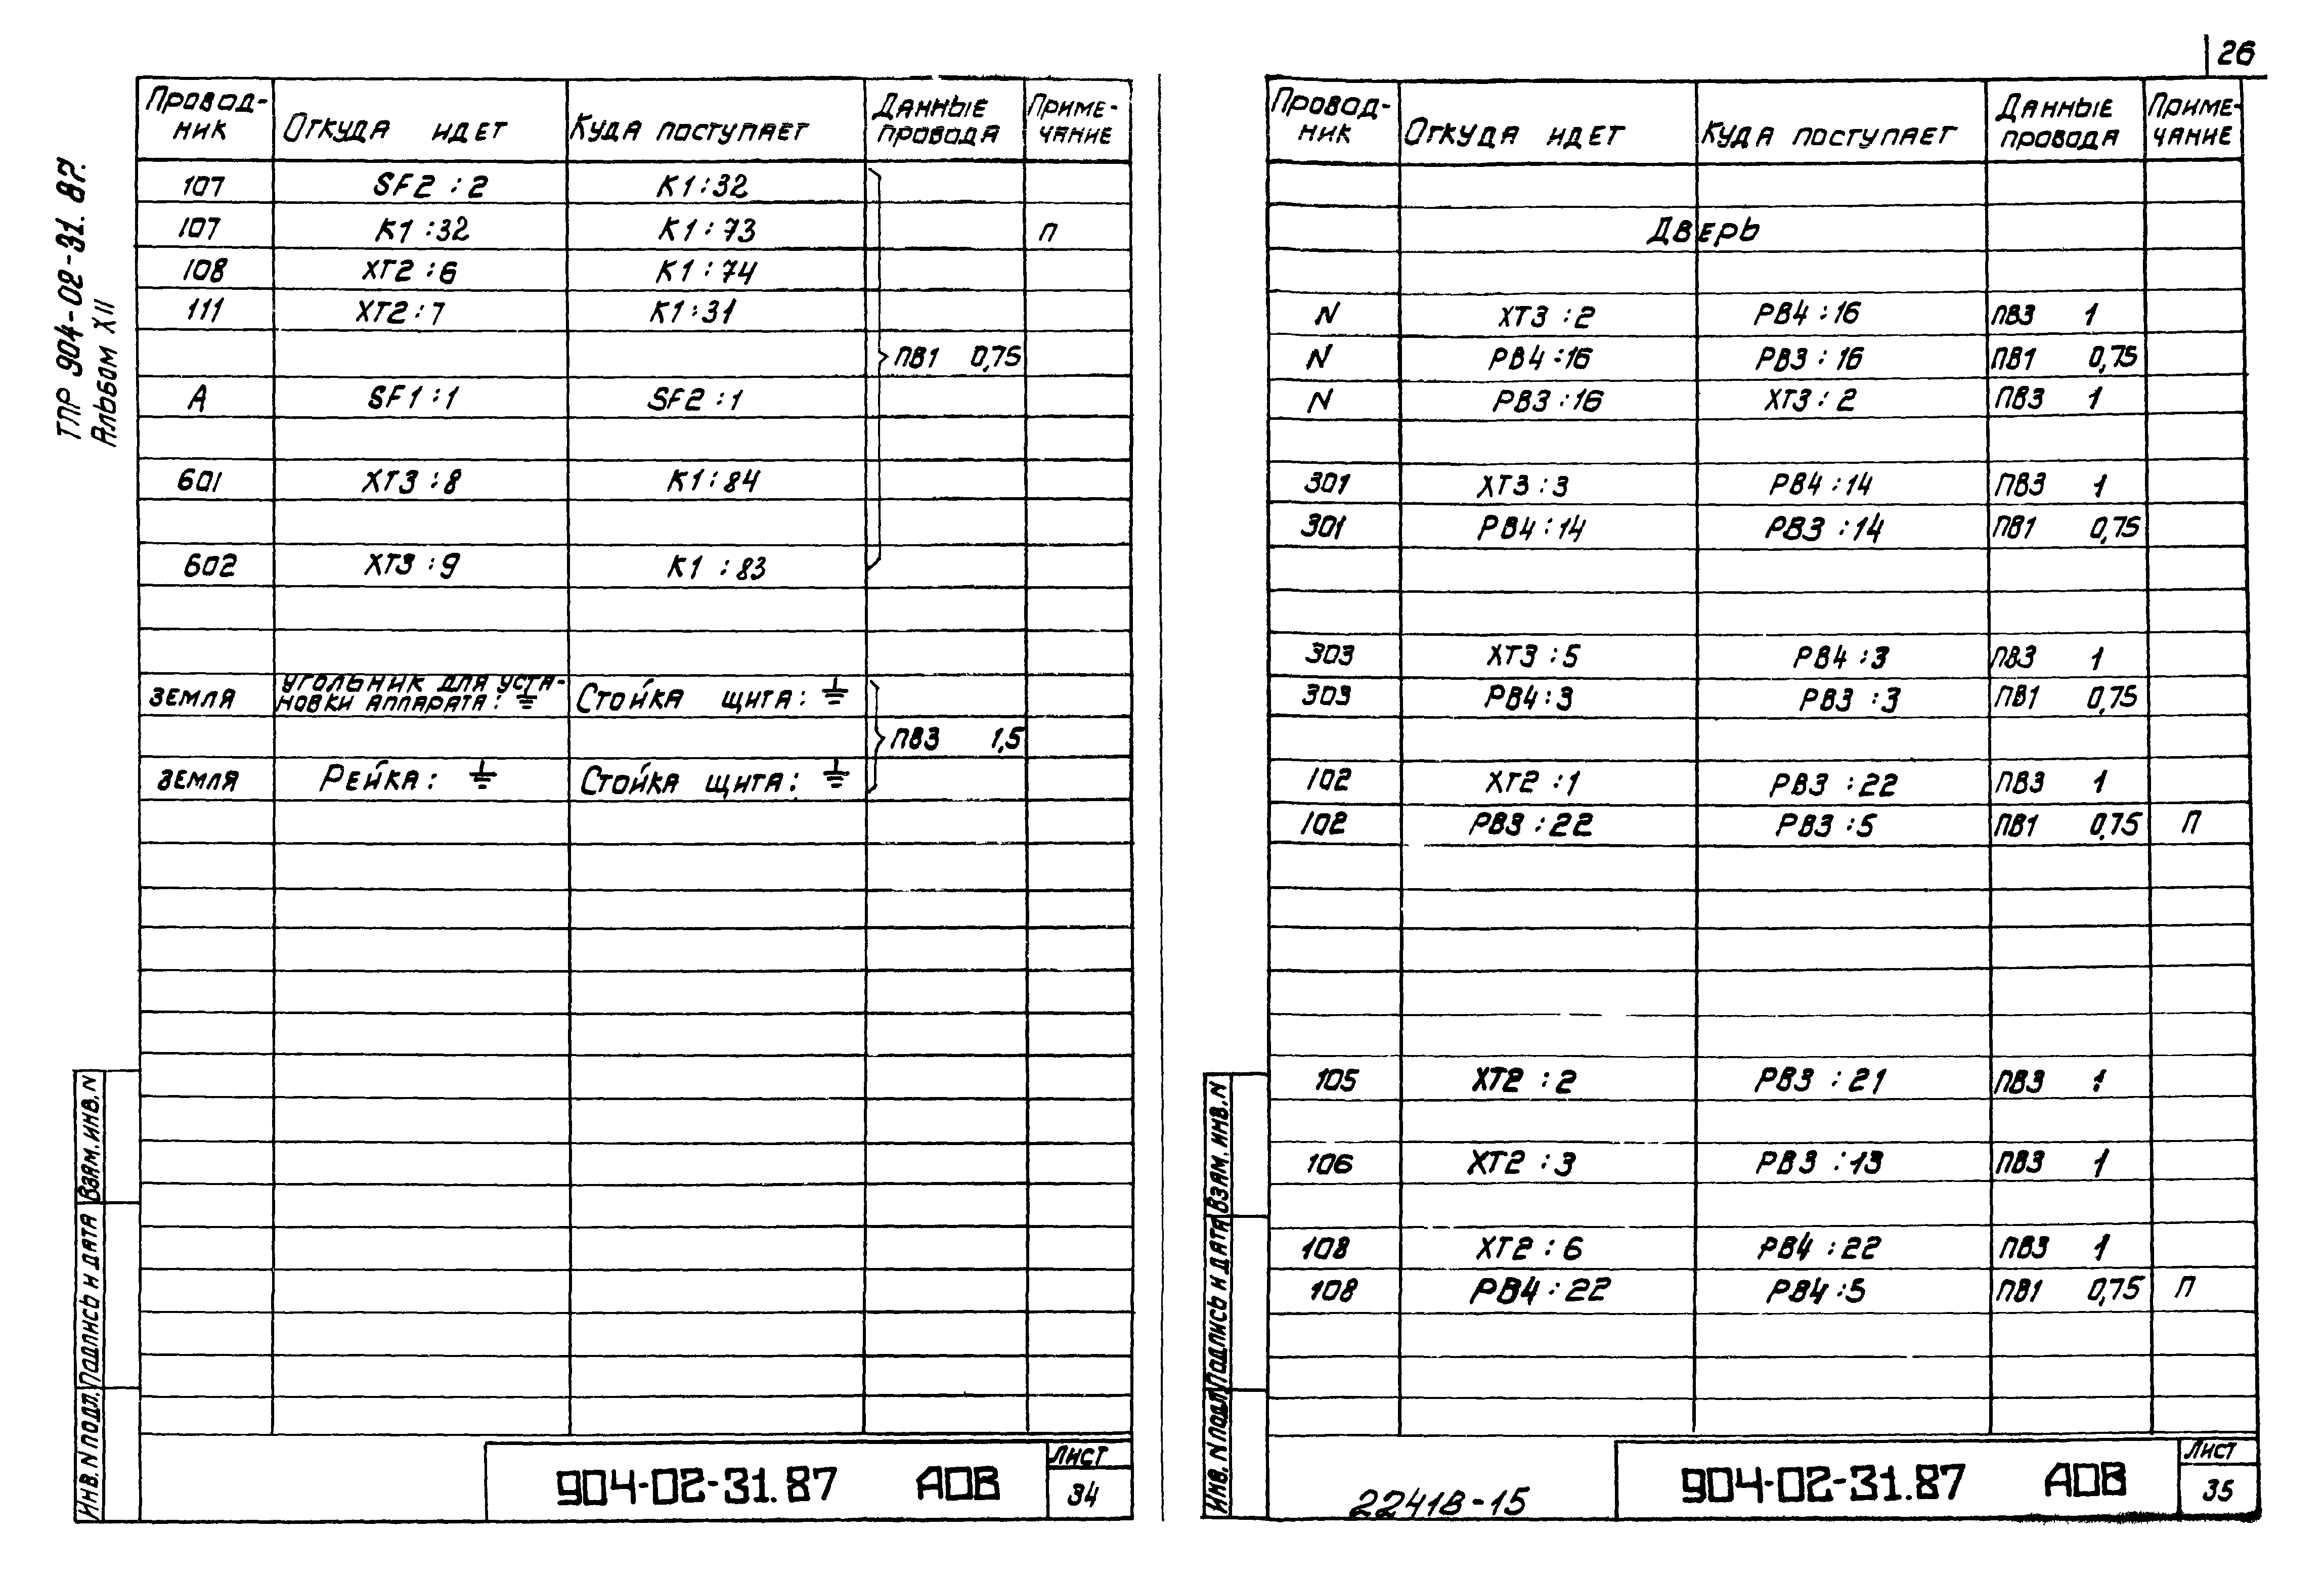 26
ТПР 904-02-31. 87.
Альбом XII
Провод-
ник
Откуда идет
Куда поступает
Данные
провода
Приме-
чание
107 SF2 : 2 К1 : 32
107 К1 : 32 К1 : 73 П
108 ХТ2 : 6 К1 : 74
111 ХТ2 : 7 К1 : 31
ПВ1 0,75
А SF1 : 1 SF2 : 1
601 ХТ3 : 8 К1 : 84
602 ХТ3 : 9 К1 : 83
земля угольник для уста-
новки аппарата : ⏚ Стойка щита : ⏚
ПВ3 1,5
земля Рейка : ⏚ Стойка щита : ⏚
Инв. N подл. Подпись и дата Взам. инв. N
904-02-31.87 АОВ
Лист
34
Провод-
ник
Откуда идет
Куда поступает
Данные
провода
Приме-
чание
Дверь
N ХТ3 : 2 РВ4 : 16 ПВ3 1
N РВ4 : 16 РВ3 : 16 ПВ1 0,75
N РВ3 : 16 ХТ3 : 2 ПВ3 1
301 ХТ3 : 3 РВ4 : 14 ПВ3 1
301 РВ4 : 14 РВ3 : 14 ПВ1 0,75
303 ХТ3 : 5 РВ4 : 3 ПВ3 1
303 РВ4 : 3 РВ3 : 3 ПВ1 0,75
102 ХТ2 : 1 РВ3 : 22 ПВ3 1
102 РВ3 : 22 РВ3 : 5 ПВ1 0,75 П
105 ХТ2 : 2 РВ3 : 21 ПВ3 1
106 ХТ2 : 3 РВ3 : 13 ПВ3 1
108 ХТ2 : 6 РВ4 : 22 ПВ3 1
108 РВ4 : 22 РВ4 : 5 ПВ1 0,75 П
Инв. N подл. Подпись и дата Взам. инв. N
22418-15
904-02-31.87 АОВ
Лист
35